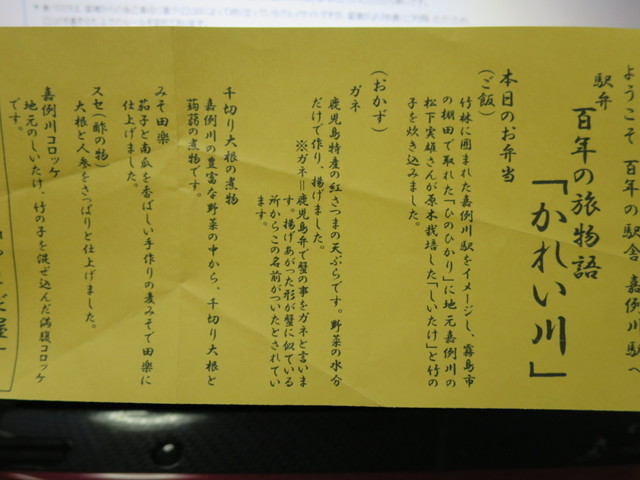 ようこそ 百年の駅舎 嘉例川駅へ
駅弁
百年の旅物語
「かれい川」
本日のお弁当
(ご飯)
竹林に囲まれた嘉例川駅をイメージし、霧島市
の棚田で取れた「ひのひかり」に地元嘉例川の
松下実雄さんが原木栽培した「しいたけ」と竹の
子を炊き込みました。
(おかず)
ガネ
鹿児島特産の紅さつまの天ぷらです。野菜の水分
だけで作り、揚げました。
※ガネ=鹿児島弁で蟹の事をガネと言いま
す。揚げあがった形が蟹に似ている
所からこの名前がついたとされてい
ます。
千切り大根の煮物
嘉例川の豊富な野菜の中から、千切り大根と
蒟蒻の煮物です。
みそ田楽
茄子と南瓜を香ばしい手作りの麦みそで田楽に
仕上げました。
スセ(酢の物)
大根と人参をさっぱりと仕上げました。
嘉例川コロッケ
地元のしいたけ、竹の子を混ぜ込んだ満腹コロッケ
です。